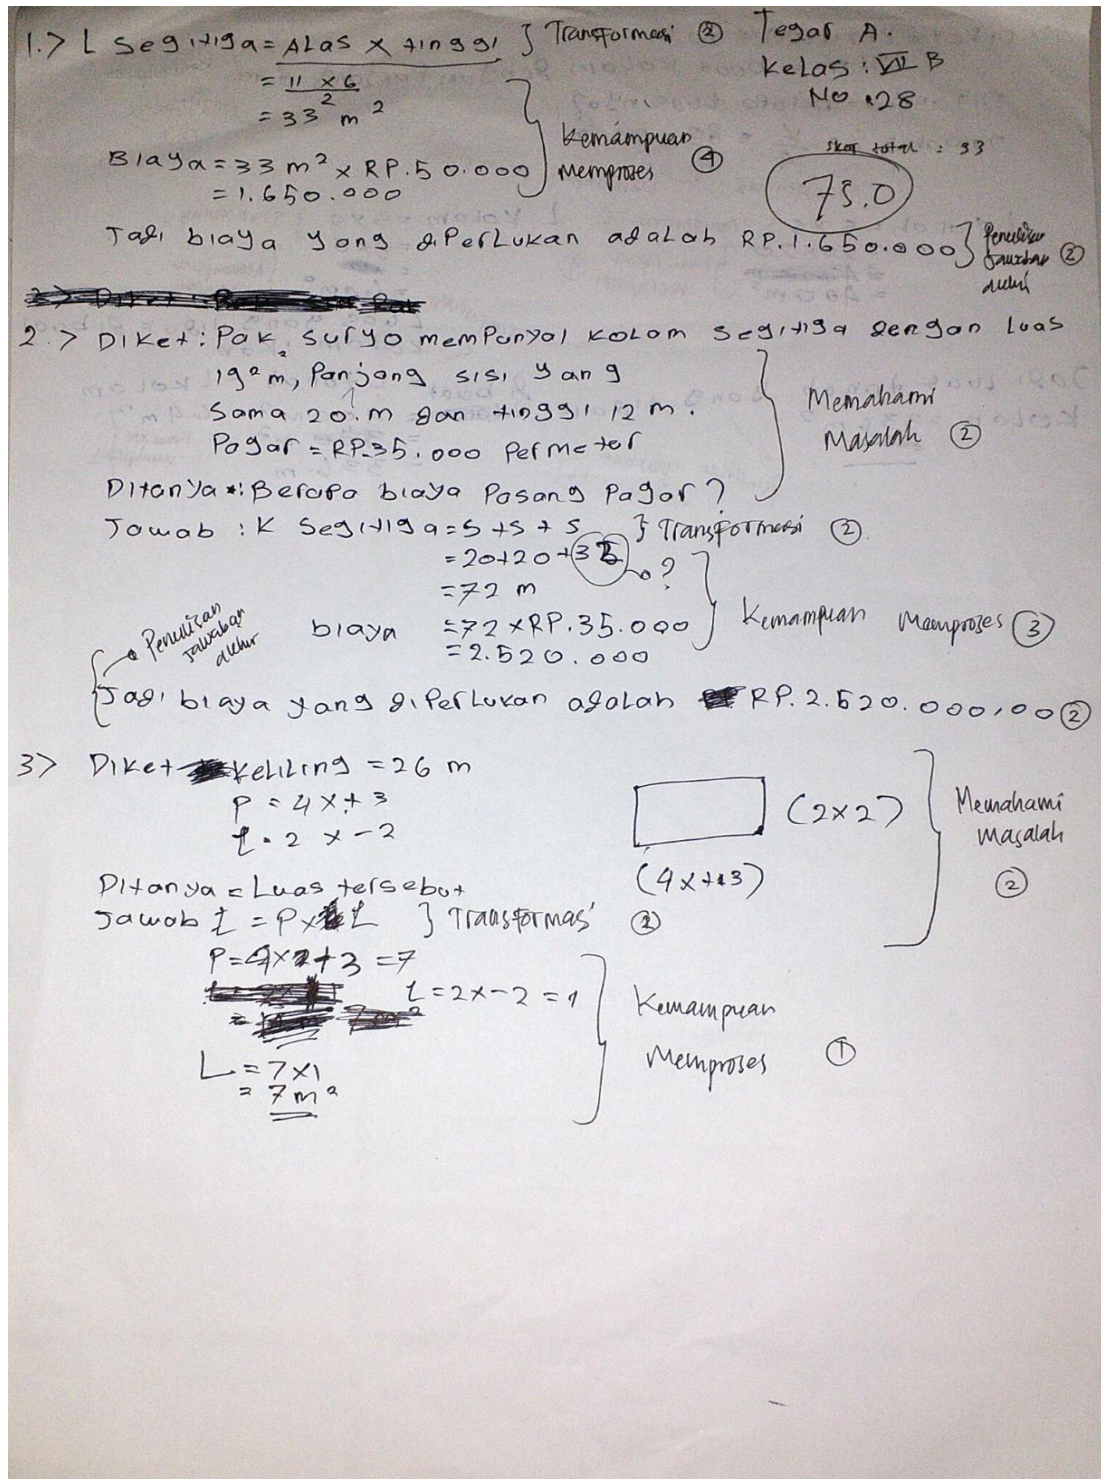 1.> L Segitiga = ALas x tinggi } Transformasi ②
Tegar A.
Kelas : VII B
No : 28
= 11 x 6
2
= 33 m²
Kemampuan
Memproses ④
skor total : 33
73.0
Biaya = 33 m² x RP. 50.000
= 1.650.000
Jadi biaya yang diperlukan adalah RP. 1.650.000 } Penulisan
jawaban ②
akhir
2.> Diket : Pak Suryo mempunyai kolam segitiga dengan Luas
192 m, Panjang sisi yang
Sama 20 m dan tinggi 12 m.
Pagar = RP.35.000 Permeter
Memahami
Masalah ②
Ditanya : Berapa biaya Pasang Pagar ?
Jawab : K Segitiga = S + S + S } Transformasi ②
= 20 + 20 + 32 ?
= 72 m
biaya = 72 x RP. 35.000
= 2.520.000
Kemampuan Memproses ③
Penulisan
jawaban
akhir
Jadi biaya yang diperlukan adalah RP. 2.520.000,00 ②
3> Diket Keliling = 26 m
P = 4x + 3
L = 2x - 2
(2x2)
(4x+3)
Memahami
Masalah
②
Ditanya = Luas tersebut
Jawab L = P x L } Transformasi ②
P = 4x + 3 = 7
L = 2x - 2 = 1
Kemampuan
Memproses ①
L = 7x1
= 7 m²